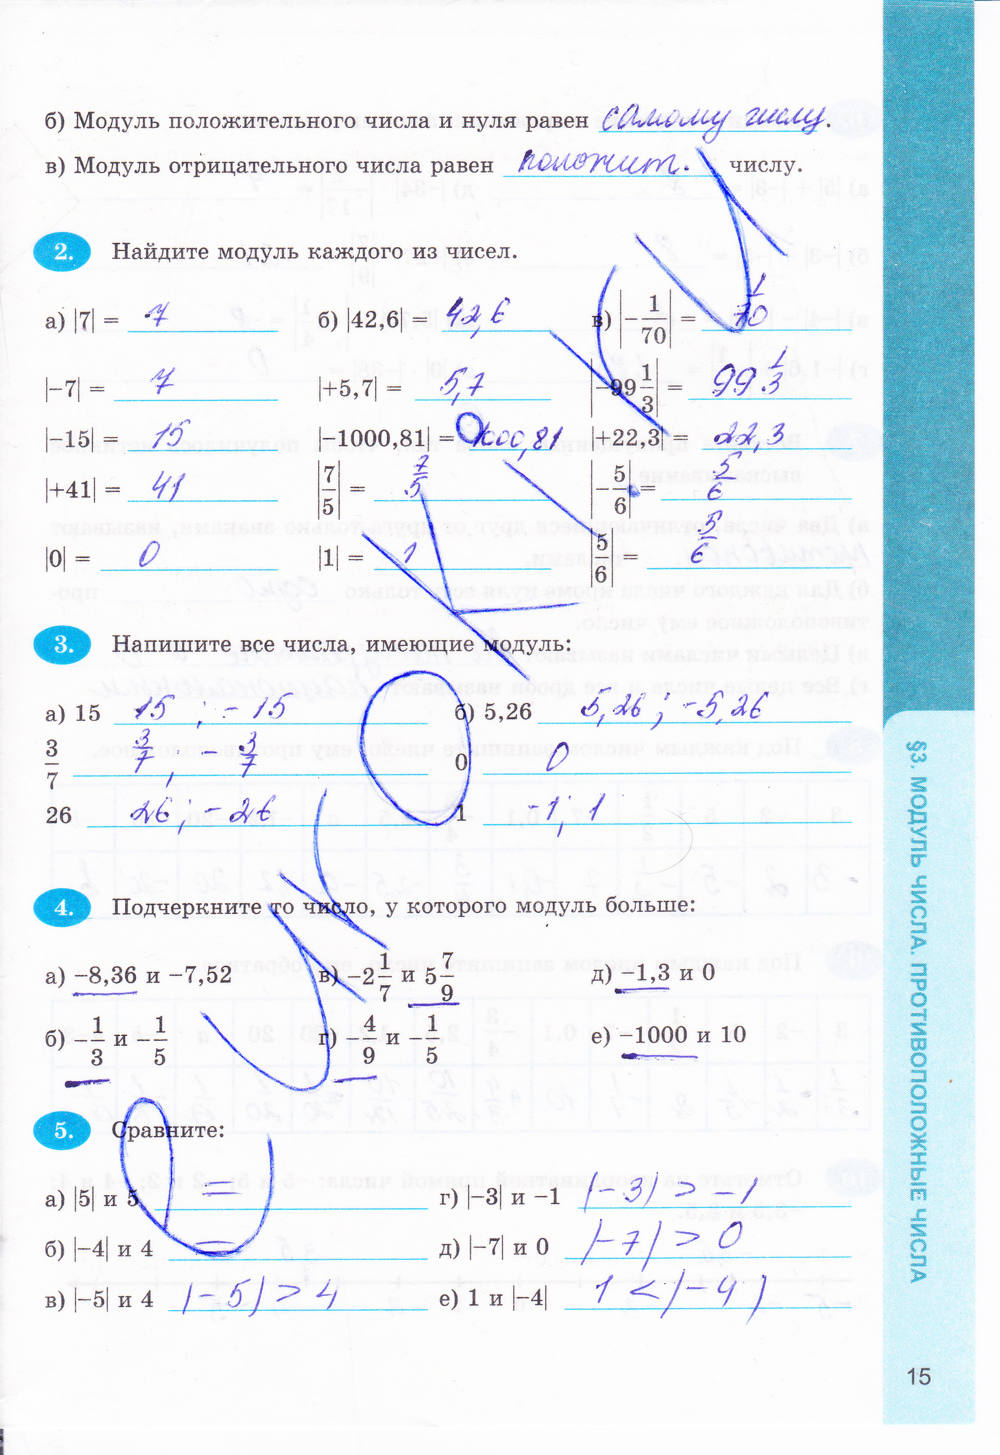 б) Модуль положительного числа и нуля равен самому числу.
в) Модуль отрицательного числа равен положит. числу.
2. Найдите модуль каждого из чисел.
а) |7| = 7 б) |42,6| 42,6 в) |-1/70| = 1/70
|-7| = 7 |+5,7| = 5,7 |-99 1/3| = 99 1/3
|-15| = 15 |-1000,81| = 1000,81 |+22,3| = 22,3
|+41| = 41 |7/5| = 7/5 |-5/6| = 5/6
|0| = 0 |1| = 1 |5/6| = 5/6
3. Напишите все числа, имеющие модуль:
а) 15 15 ; -15 б) 5,26 5,26 ; -5,26
3/7 3/7 , -3/7 0 0
26 26 ; -26 1 -1 ; 1
4. Подчеркните то число, у которого модуль больше:
а) -8,36 и -7,52 в) -2 1/7 и 5 7/9 д) -1,3 и 0
б) -1/3 и -1/5 г) -4/9 и -1/5 е) -1000 и 10
5. Сравните:
а) |5| и 5 = г) |-3| и -1 |-3| > -1
б) |-4| и 4 = д) |-7| и 0 |-7| > 0
в) |-5| и 4 |-5| > 4 е) 1 и |-4| 1 < |-4|
§3. МОДУЛЬ ЧИСЛА. ПРОТИВОПОЛОЖНЫЕ ЧИСЛА
15